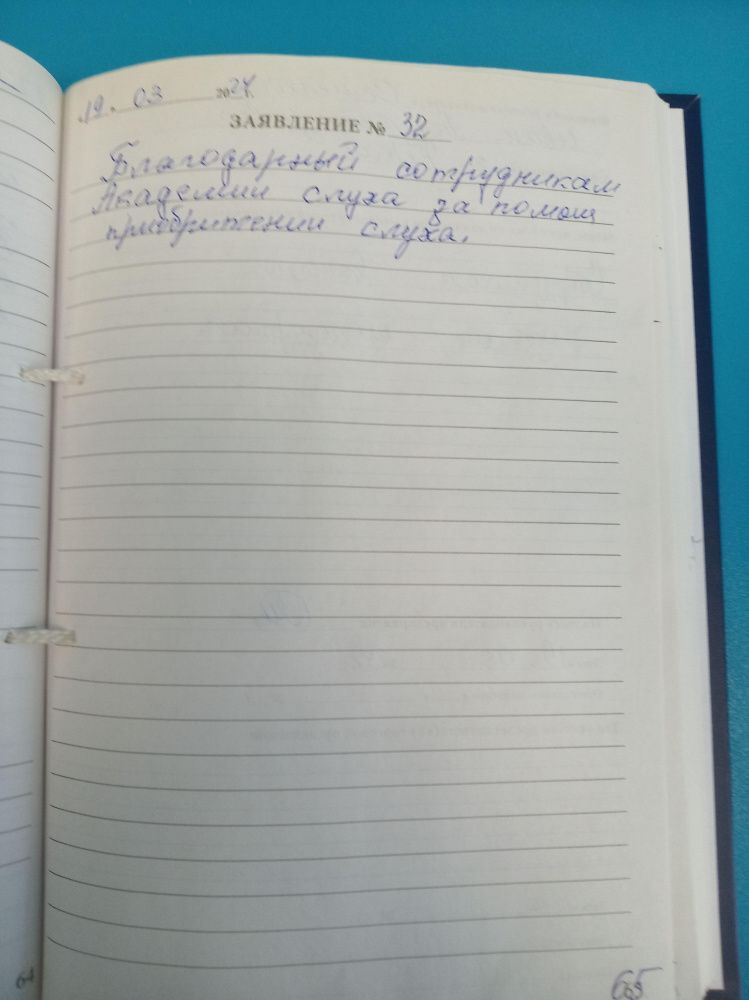 19. 03 2024 г.
ЗАЯВЛЕНИЕ № 32
Благодарный сотрудникам
Академии слуха за помощ
приобритении слуха.
64
65